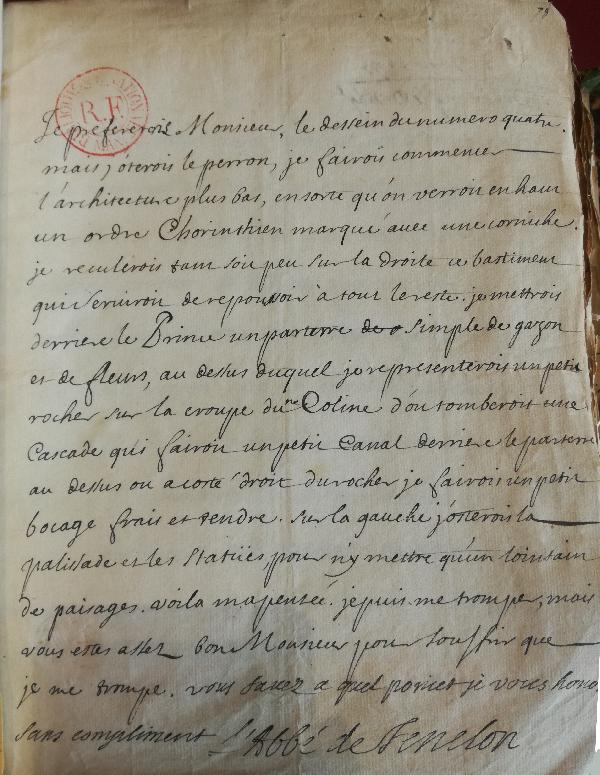 79
R.F
Je prefererois Monsieur, le dessein du numero quatre.
mais j'oterois le perron, je fairois commencer
l'architecture plus bas, ensorte qu'on verroit en haut
un ordre Chorinthien marqué avec une corniche.
je reculerois tant soit peu sur la droite ce bastiment
qui serviroit de repoussoir à tout le reste. je mettrois
derriere le Prince un parterre simple de gazon
et de fleurs, au dessus duquel je representerois un petit
rocher sur la croupe d'une Coline d'ou tomberoit une
Cascade qui fairoit un petit Canal derriere le parterre
au dessus ou a costé droit du rocher je fairois un petit
bocage frais et tendre. sur la gauche j'osterois la
palissade et les Statües, pour n'y mettre qu'un lointain
de païsages. voila ma pensée. je puis me tromper, mais
vous estes assez bon Monsieur pour souffrir que
je me trompe. vous savez a quel point je vous honore
sans compliment l'Abbé de Fenelon